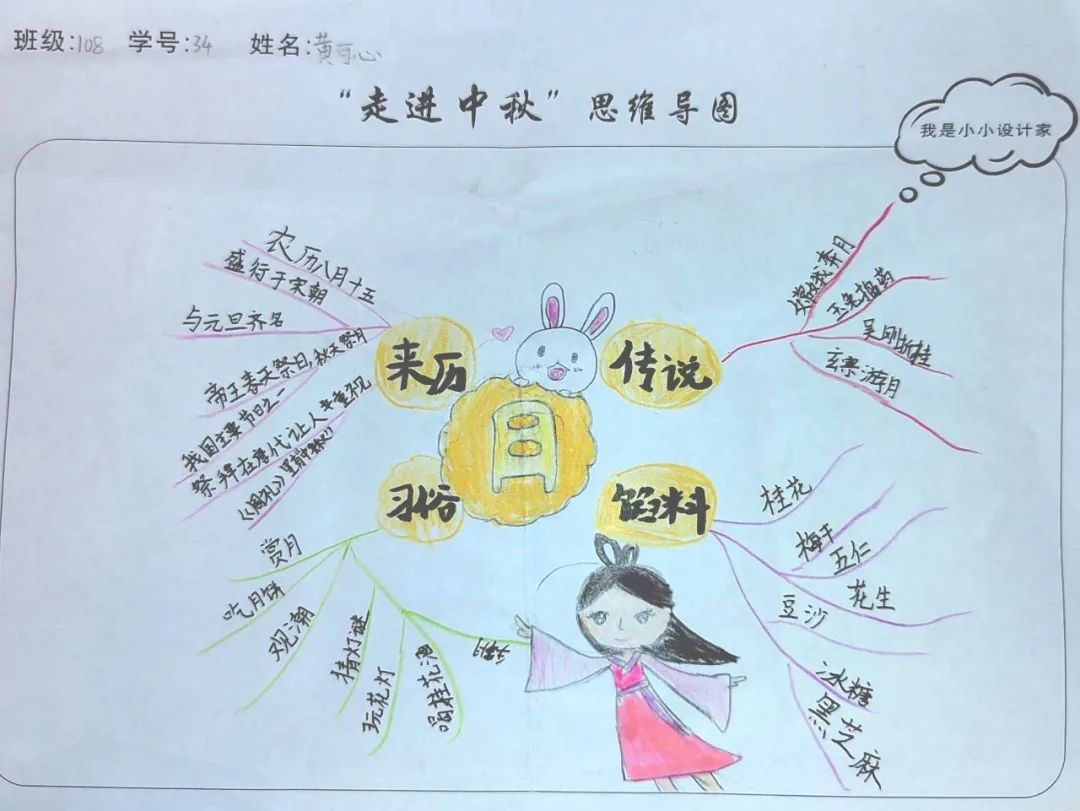 班级:108 学号:34 姓名:黄可心
“走进中秋”思维导图
我是小小设计家
来历
农历八月十五
盛行于宋朝
与元旦齐名
帝王春天祭日,秋天祭月
我国主要节日之一
祭拜在唐代让人重视
《周礼》里有中秋
传说
嫦娥奔月
玉兔捣药
吴刚折桂
玄宗游月
月
习俗
赏月
吃月饼
观潮
猜灯谜
玩花灯
喝桂花酒
馅料
桂花
梅干
五仁
花生
豆沙
冰糖
黑芝麻